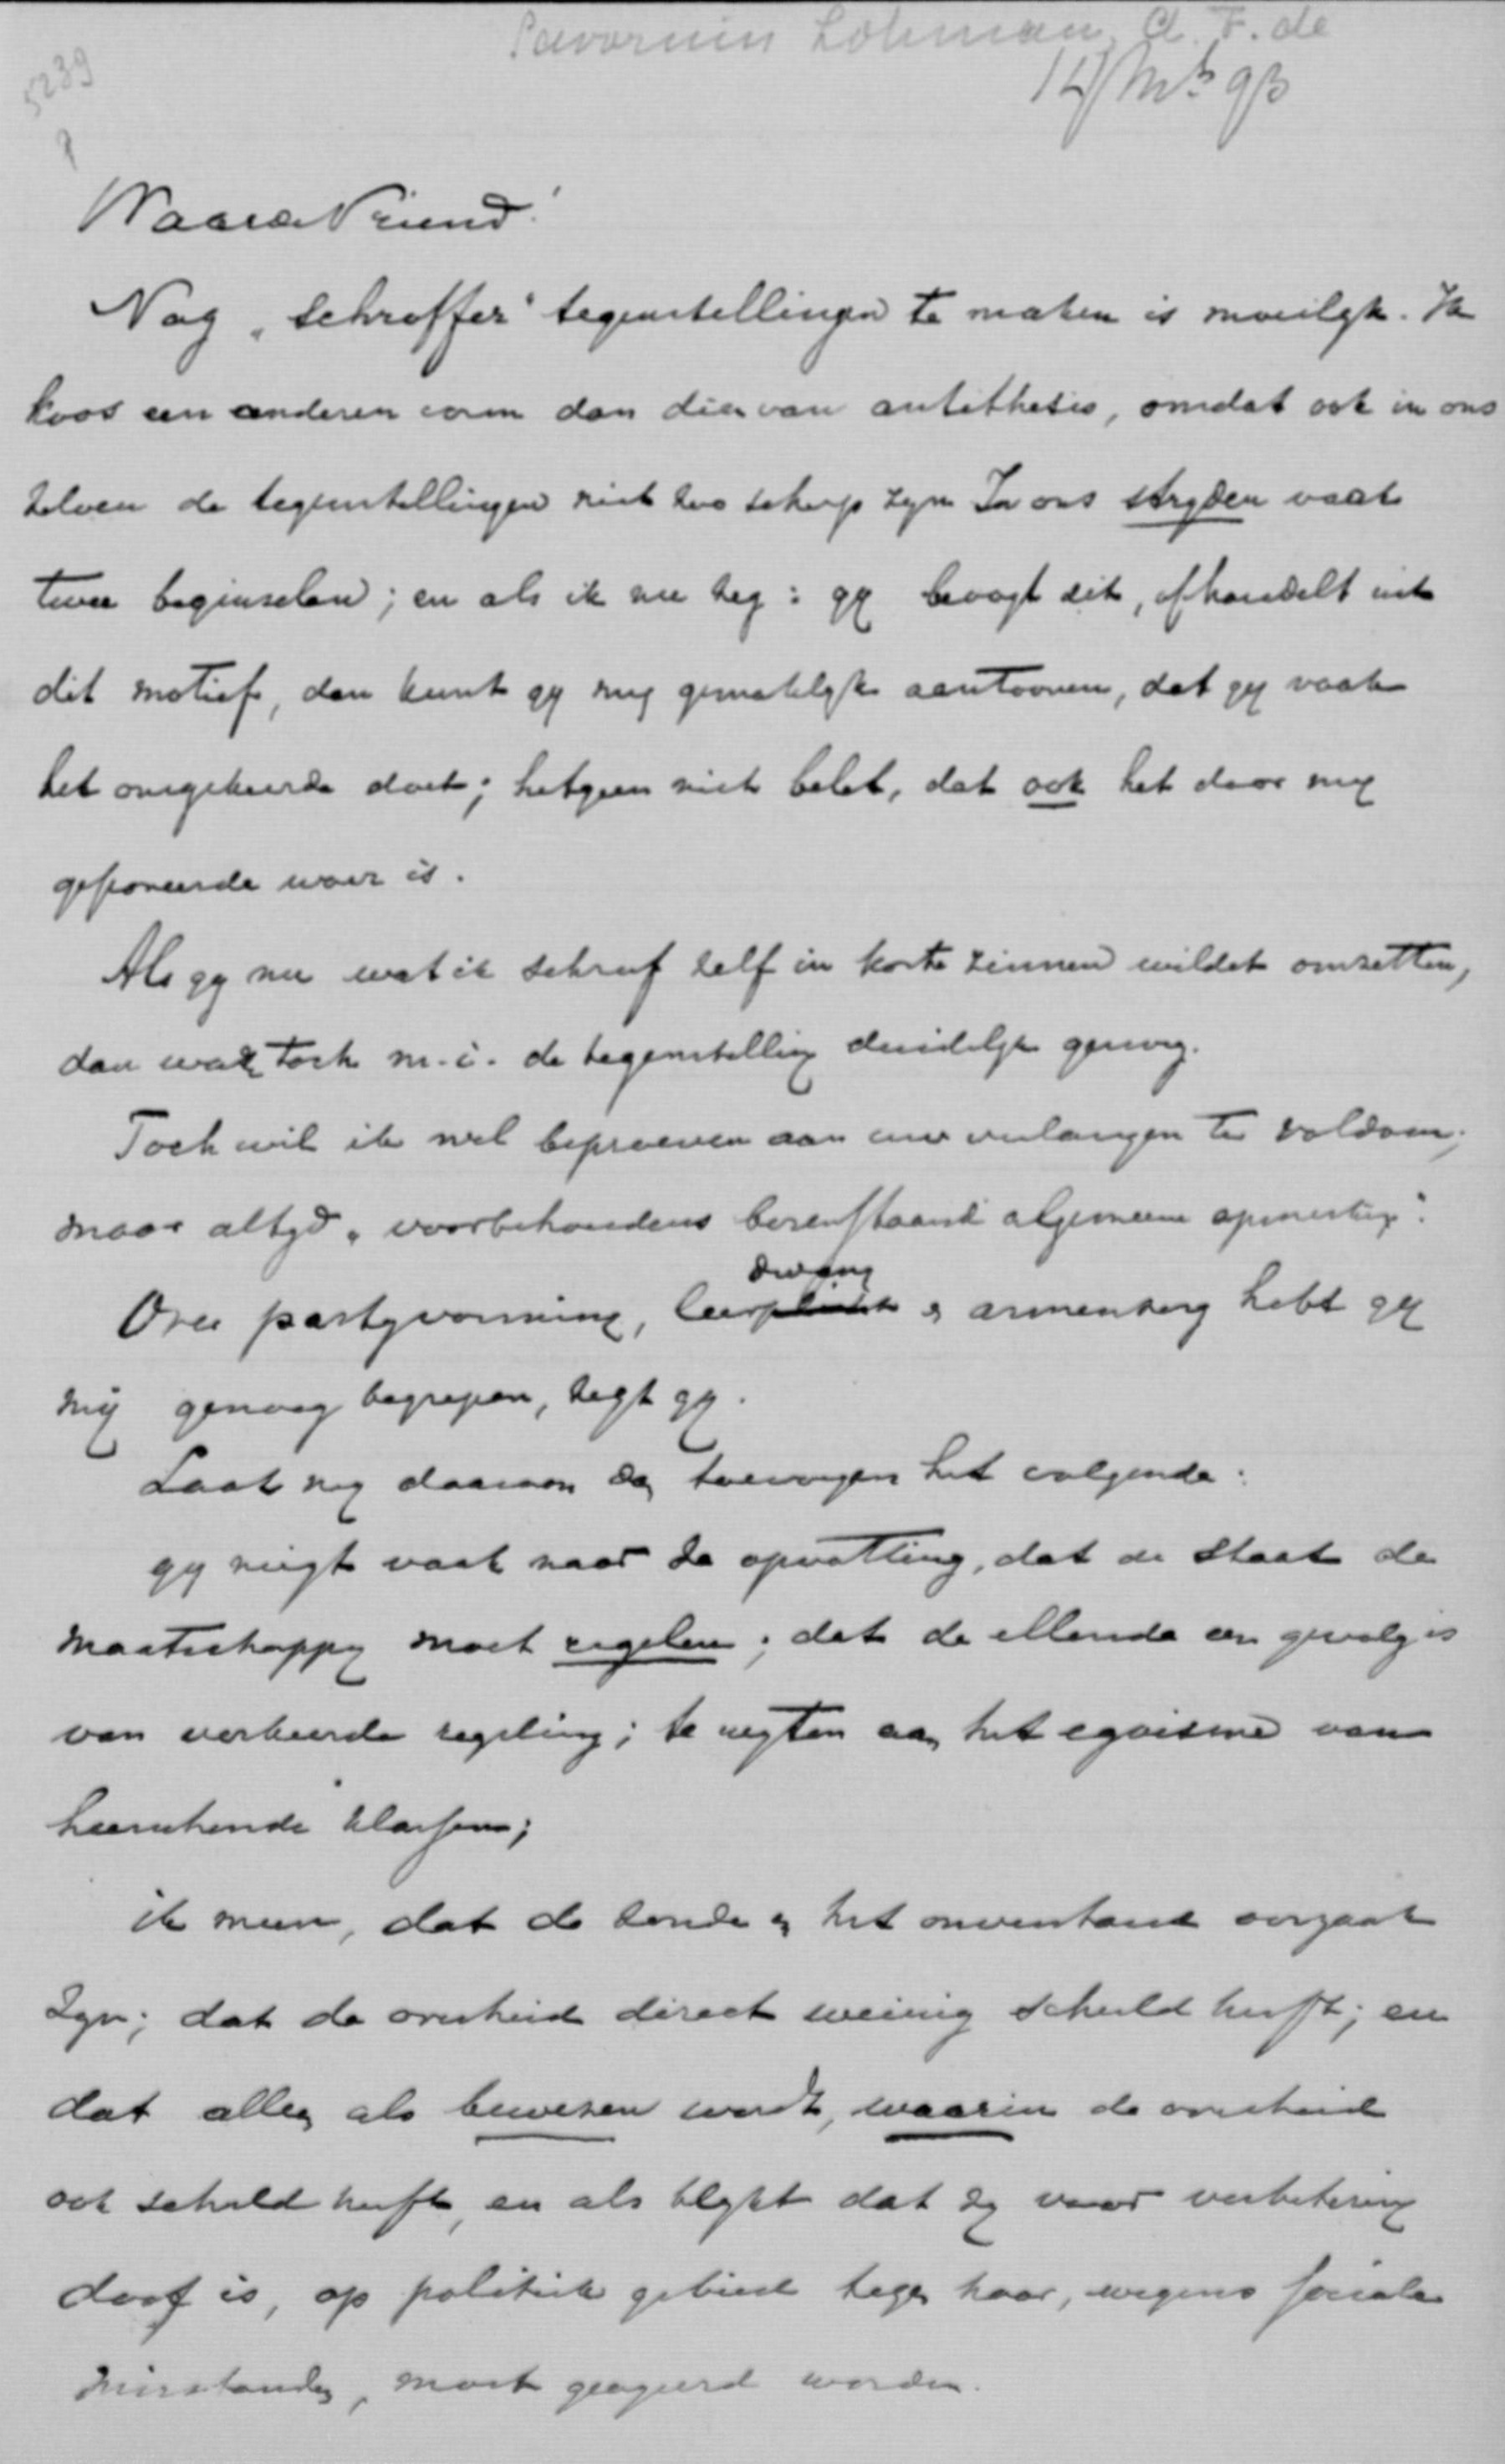 Savornin Lohman, A. F. de
14/Mrt 93
5239
Waarde Vriend!
Nog „schroffer" tegenstellingen te maken is moeilyk. Ik
koos een anderen vorm dan dien van antithesis, omdat ook in ons
zelven de tegenstellingen niet zoo scherp zyn. In ons stryden vaak
twee beginselen; en als ik nu zeg: gy beoogt dit, of handelt uit
dit motief, dan kunt gy my gemakkelyk aantoonen, dat gy vaak
het omgekeerde doet; hetgeen niet belet, dat ook het door my
geponeerde waar is.
Als gy nu wat ik schreef zelf in korte zinnen wildet omzetten,
dan was toch m. i. de tegenstelling duidelyk genoeg.
Toch wil ik wel beproeven aan uw verlangen te voldoen;
maar altyd „voorbehoudens bovenstaande algemeene opmerking".
dwang
Over partyvorming, leerplicht en armenzorg hebt gy
mij genoeg begrepen, zegt gy.
Laat my daaraan dan toevoegen het volgende:
gy neigt vaak naar de opvatting, dat de Staat de
maatschappy moet regelen; dat de ellende een gevolg is
van verkeerde regeling; te wyten aan het egoisme van
heerschende klassen;
ik meen, dat de zonde en het onverstand oorzaak
zyn; dat de overheid direct weinig schuld heeft; en
dat alleen als bewezen wordt, waarin de overheid
ook schuld heeft, en als blykt dat zy voor verbetering
doof is, op politiek gebied tegen haar, wegens sociale
misstanden, moet geageerd worden.